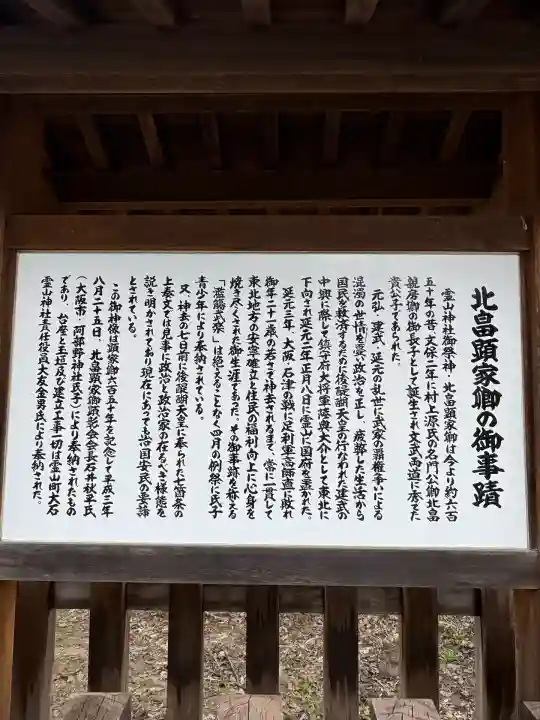 北畠顕家卿の御事蹟
霊山神社御祭神、北畠顕家卿は今より約六百
五十年の昔、文保二年に村上源氏の名門公卿北畠
親房卿の御長子として誕生され文武両道に秀でた
貴公子であられた。
元弘・建武、延元の乱世に武家の覇権争いによる
混濁の世情を憂い政治を正し、疲弊した生活から
国民を救済するために後醍醐天皇の行なわれた建武の
中興に際して鎮守府大将軍陸奥大介として東北に
下向され延元二年正月八日に霊山に国府を置かれた。
延元三年、大阪・石津の戦に足利軍高師直に敗れ
御年二十一歳の若さで神去されるまで、常に一貫して
東北地方の安寧確立と住民の福利向上に心身を
焼き尽くされた御生涯であった。その御事蹟を称える
「濫觴武楽」は絶えることなく四月の例祭に氏子
青少年により奉納されている。
又、神去の七日前に後醍醐天皇に奉られた七箇条の
上奏文では見事に政治と政治家の在るべき様態を
説き明かされており現在にあっても治国安民の要諦
とされている。
この御神像は顕家卿六百五十年を記念して平成三年
八月二十五日、北畠顕家卿顕彰会会長石井秋平氏
（大阪市・阿部野神社氏子）により奉納されたもの
であり、台座と玉垣及び建立工事一切は霊山町大石
霊山神社責任役員大友金男氏により奉納された。